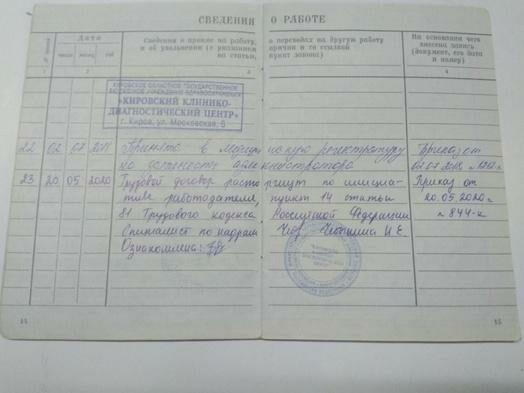 СВЕДЕНИЯ О РАБОТЕ
Дата
Сведения о приеме на работу, о переводах на другую работу
и об увольнении (с указанием причин и со ссылкой
на статью, пункт закона)
На основании чего
внесена запись
(документ, его дата
и номер)
число месяц год
1 2 3 4
КИРОВСКОЕ ОБЛАСТНОЕ ГОСУДАРСТВЕННОЕ
БЮДЖЕТНОЕ УЧРЕЖДЕНИЕ ЗДРАВООХРАНЕНИЯ
«КИРОВСКИЙ КЛИНИКО-
ДИАГНОСТИЧЕСКИЙ ЦЕНТР»
г. Киров, ул. Московская, 6
22 02 07 Принята в медицинскую регистратуру Приказ от
на должность администратора 02.07
23 20 05 2020 Трудовой договор расторгнут по инициа- Приказ от
тиве работодателя, пункт 14 статьи 20.05.2020 г.
81 Трудового кодекса Российской Федерации № 844-к
Специалист по кадрам
Ознакомлена:
14 15